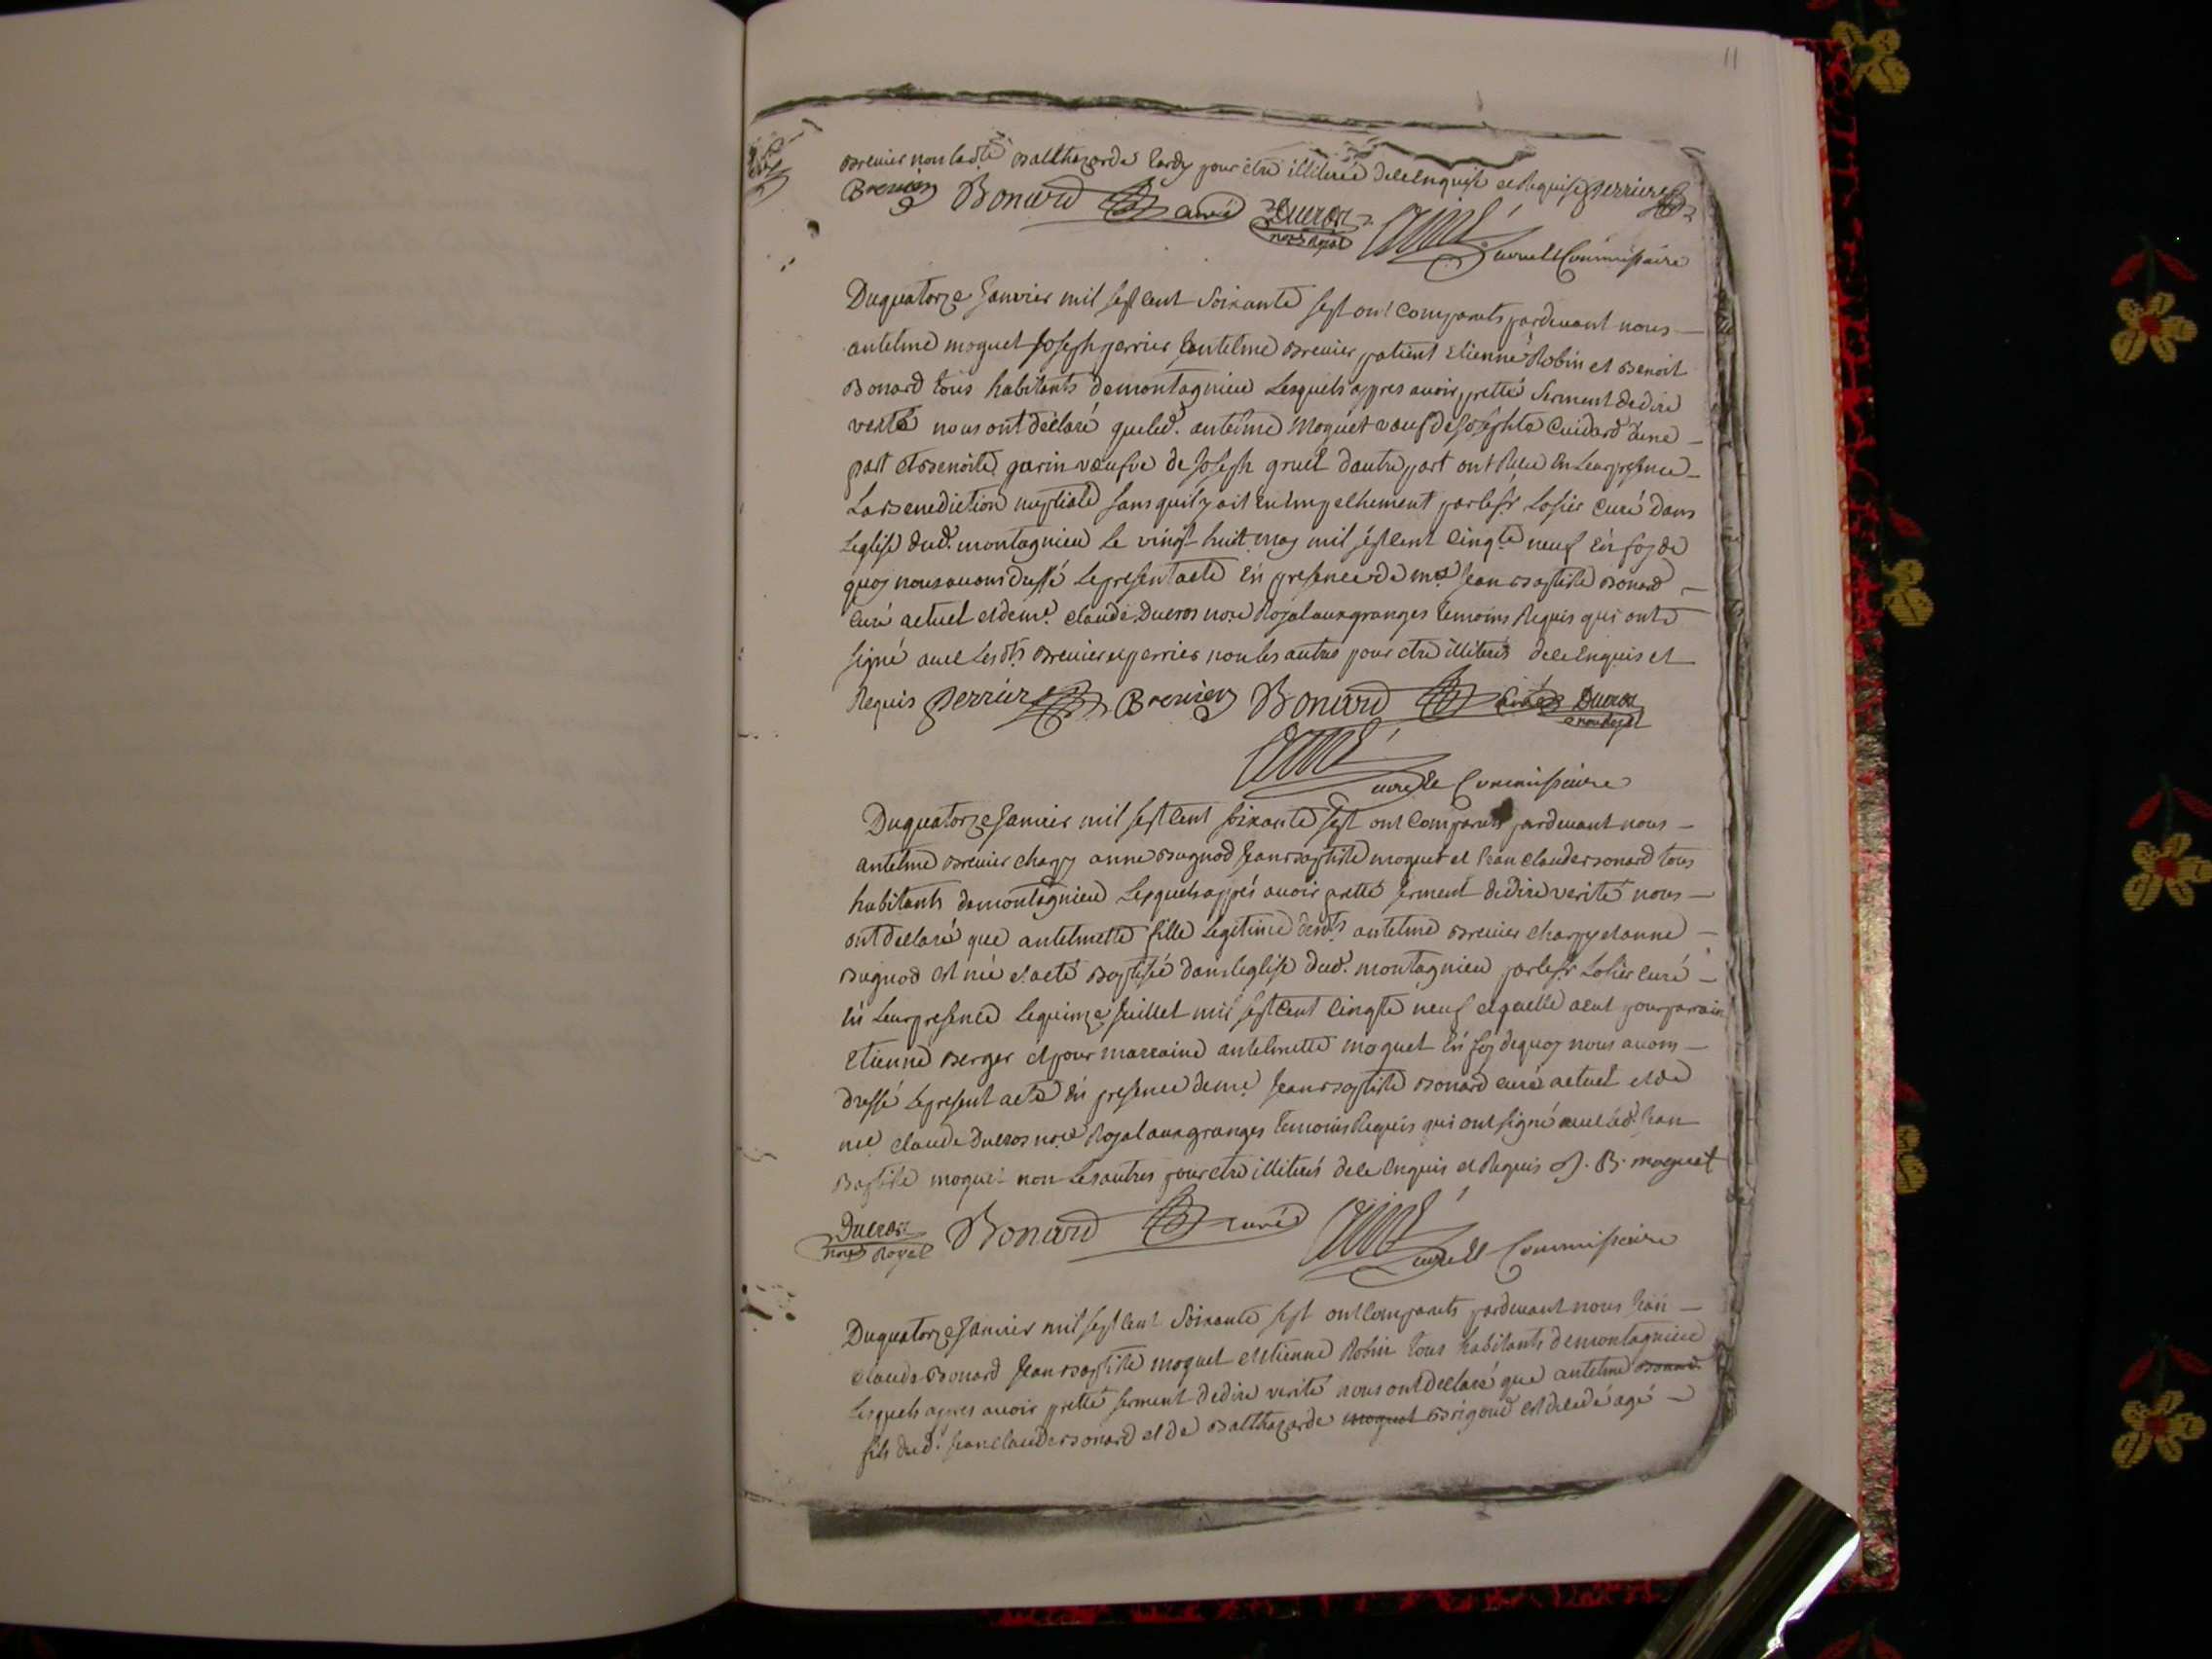 11
Brenier non ladte Balthazarde tardy pour etre illiterée dece enquise et Requise Perrier
Brenier Bonard curé Ducros nore Royal Aimé curé et Commissaire
Du quatorze Janvier mil sept cent Soixante sept ont comparuts pardevant nous
antelme moquet Joseph perrier antelme Brenier patient Etienne Robin et Benoit
Bonard tous habitants de montagnieu Lesquels appres avoir pretté Serment de dire
verité nous ont déclaré que led. antelme Moquet veuf de Josephte Cuidard d'une
part et Benoite garin veufve de Joseph gruel d'autre part ont Recu En Leur presence
La Benediction nuptiale sans qu'il y ait eu Empechement par le sr Losier Curé dans
Leglise dud. montagnieu Le vingt huit may mil sept cent Cinqte neuf En foy de
quoy nous avons dressé Le present acte En presence de me Jean Baptiste Bonard
Curé actuel et de me Claude Ducros nore Royal aux granges temoins Requis qui ont
signé avec Lesdts Brenier et perrier non les autres pour etre illiterés dece Enquis et
Requis Perrier Brenier Bonard Curé Ducros nore Royal
Aimé curé et Commissaire
Du quatorze Janvier mil sept cent soixante sept ont Comparuts pardevant nous
antelme Brenier chapy anne Bugnod Jean Baptiste moquet et Jean Claude Bonard tous
habitants de montagnieu Lesquels apprés avoir pretté serment de dire verité nous
ont declaré que antelmette fille Legitime desdts antelme Brenier chapy et anne
Bugnod est née et a eté Baptisée dans leglise dud. montagnieu par le sr Losier curé
En Leur presence Le quinze Juillet mil sept Cent Cinqte neuf et quelle a eut pour parrain
Etienne Berger et pour marraine antelmette moquet En foy de quoy nous avons
dressé Le present acte En presence de me Jean Baptiste Bonard curé actuel et de
me Claude Ducros nore Royal aux granges temoins Requis qui ont signé avec led. Jean
Baptiste moquet non Les autres pour etre illiterés dece Enquis et Requis J. B. moquet
Ducros nore Royal Bonard curé Aimé curé et Commissaire
Du quatorze Janvier mil sept cent Soixante sept ont Comparuts pardevant nous Jean
Claude Bonard Jean Baptiste moquet et Etienne Robin tous habitants de montagnieu
Lesquels appres avoir pretté serment de dire verité nous ont declaré que antelme Bonard
fils dud. Jean Claude Bonard et de Balthazarde moquet Brigoud est decedé agé